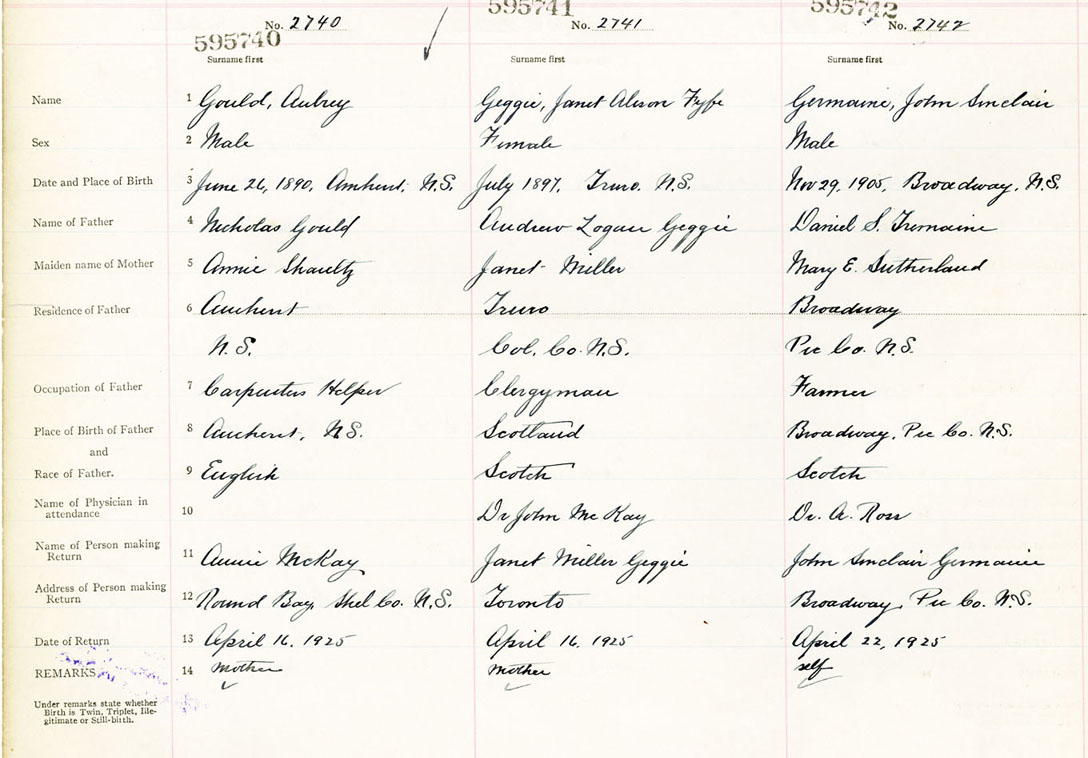 595740 595741 595742
No. 2740 No. 2741 No. 2742
Surname first Surname first Surname first
Name 1 Gould, Aubrey Geggie, Janet Alison Fyfe Germaine, John Sinclair
Sex 2 Male Female Male
Date and Place of Birth 3 June 26, 1890, Amherst, N.S. July 1897, Truro, N.S. Nov 29, 1905, Broadway, N.S.
Name of Father 4 Nicholas Gould Andrew Logan Geggie Daniel S. Tremaine
Maiden name of Mother 5 Annie Shaultz Janet Miller Mary E. Sutherland
Residence of Father 6 Amherst Truro Broadway
N.S. Col. Co. N.S. Pic Co. N.S.
Occupation of Father 7 Carpenters Helper Clergyman Farmer
Place of Birth of Father 8 Amherst, N.S. Scotland Broadway, Pic Co. N.S.
and
Race of Father. 9 English Scotch Scotch
Name of Physician in attendance 10 Dr John McKay Dr. A. Ross
Name of Person making Return 11 Annie McKay Janet Miller Geggie John Sinclair Germaine
Address of Person making Return 12 Round Bay, Shel Co. N.S. Toronto Broadway, Pic Co. N.S.
Date of Return 13 April 16, 1925 April 16, 1925 April 22, 1925
REMARKS 14 Mother Mother self
Under remarks state whether
Birth is Twin, Triplet, Ille-
gitimate or Still-birth.